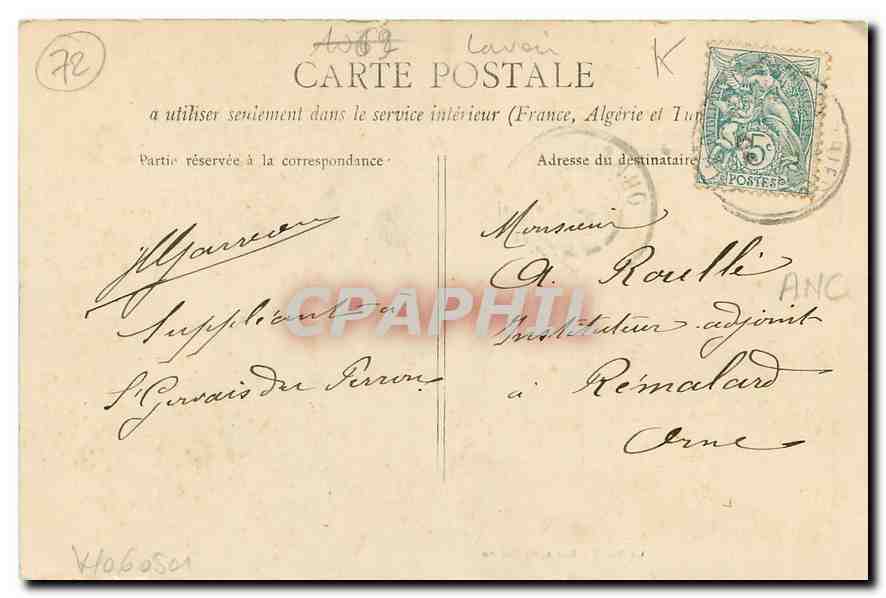 72
Lavoir
K
CARTE POSTALE
a utiliser seulement dans le service intérieur (France, Algérie et Tun
Partie réservée à la correspondance
Adresse du destinataire
5c
POSTES
Monsieur
A. Roullé
ANC
Instituteur adjoint
à Rémalard
Orne
Suppléant à
St Gervais du Perron
CPAPHIL